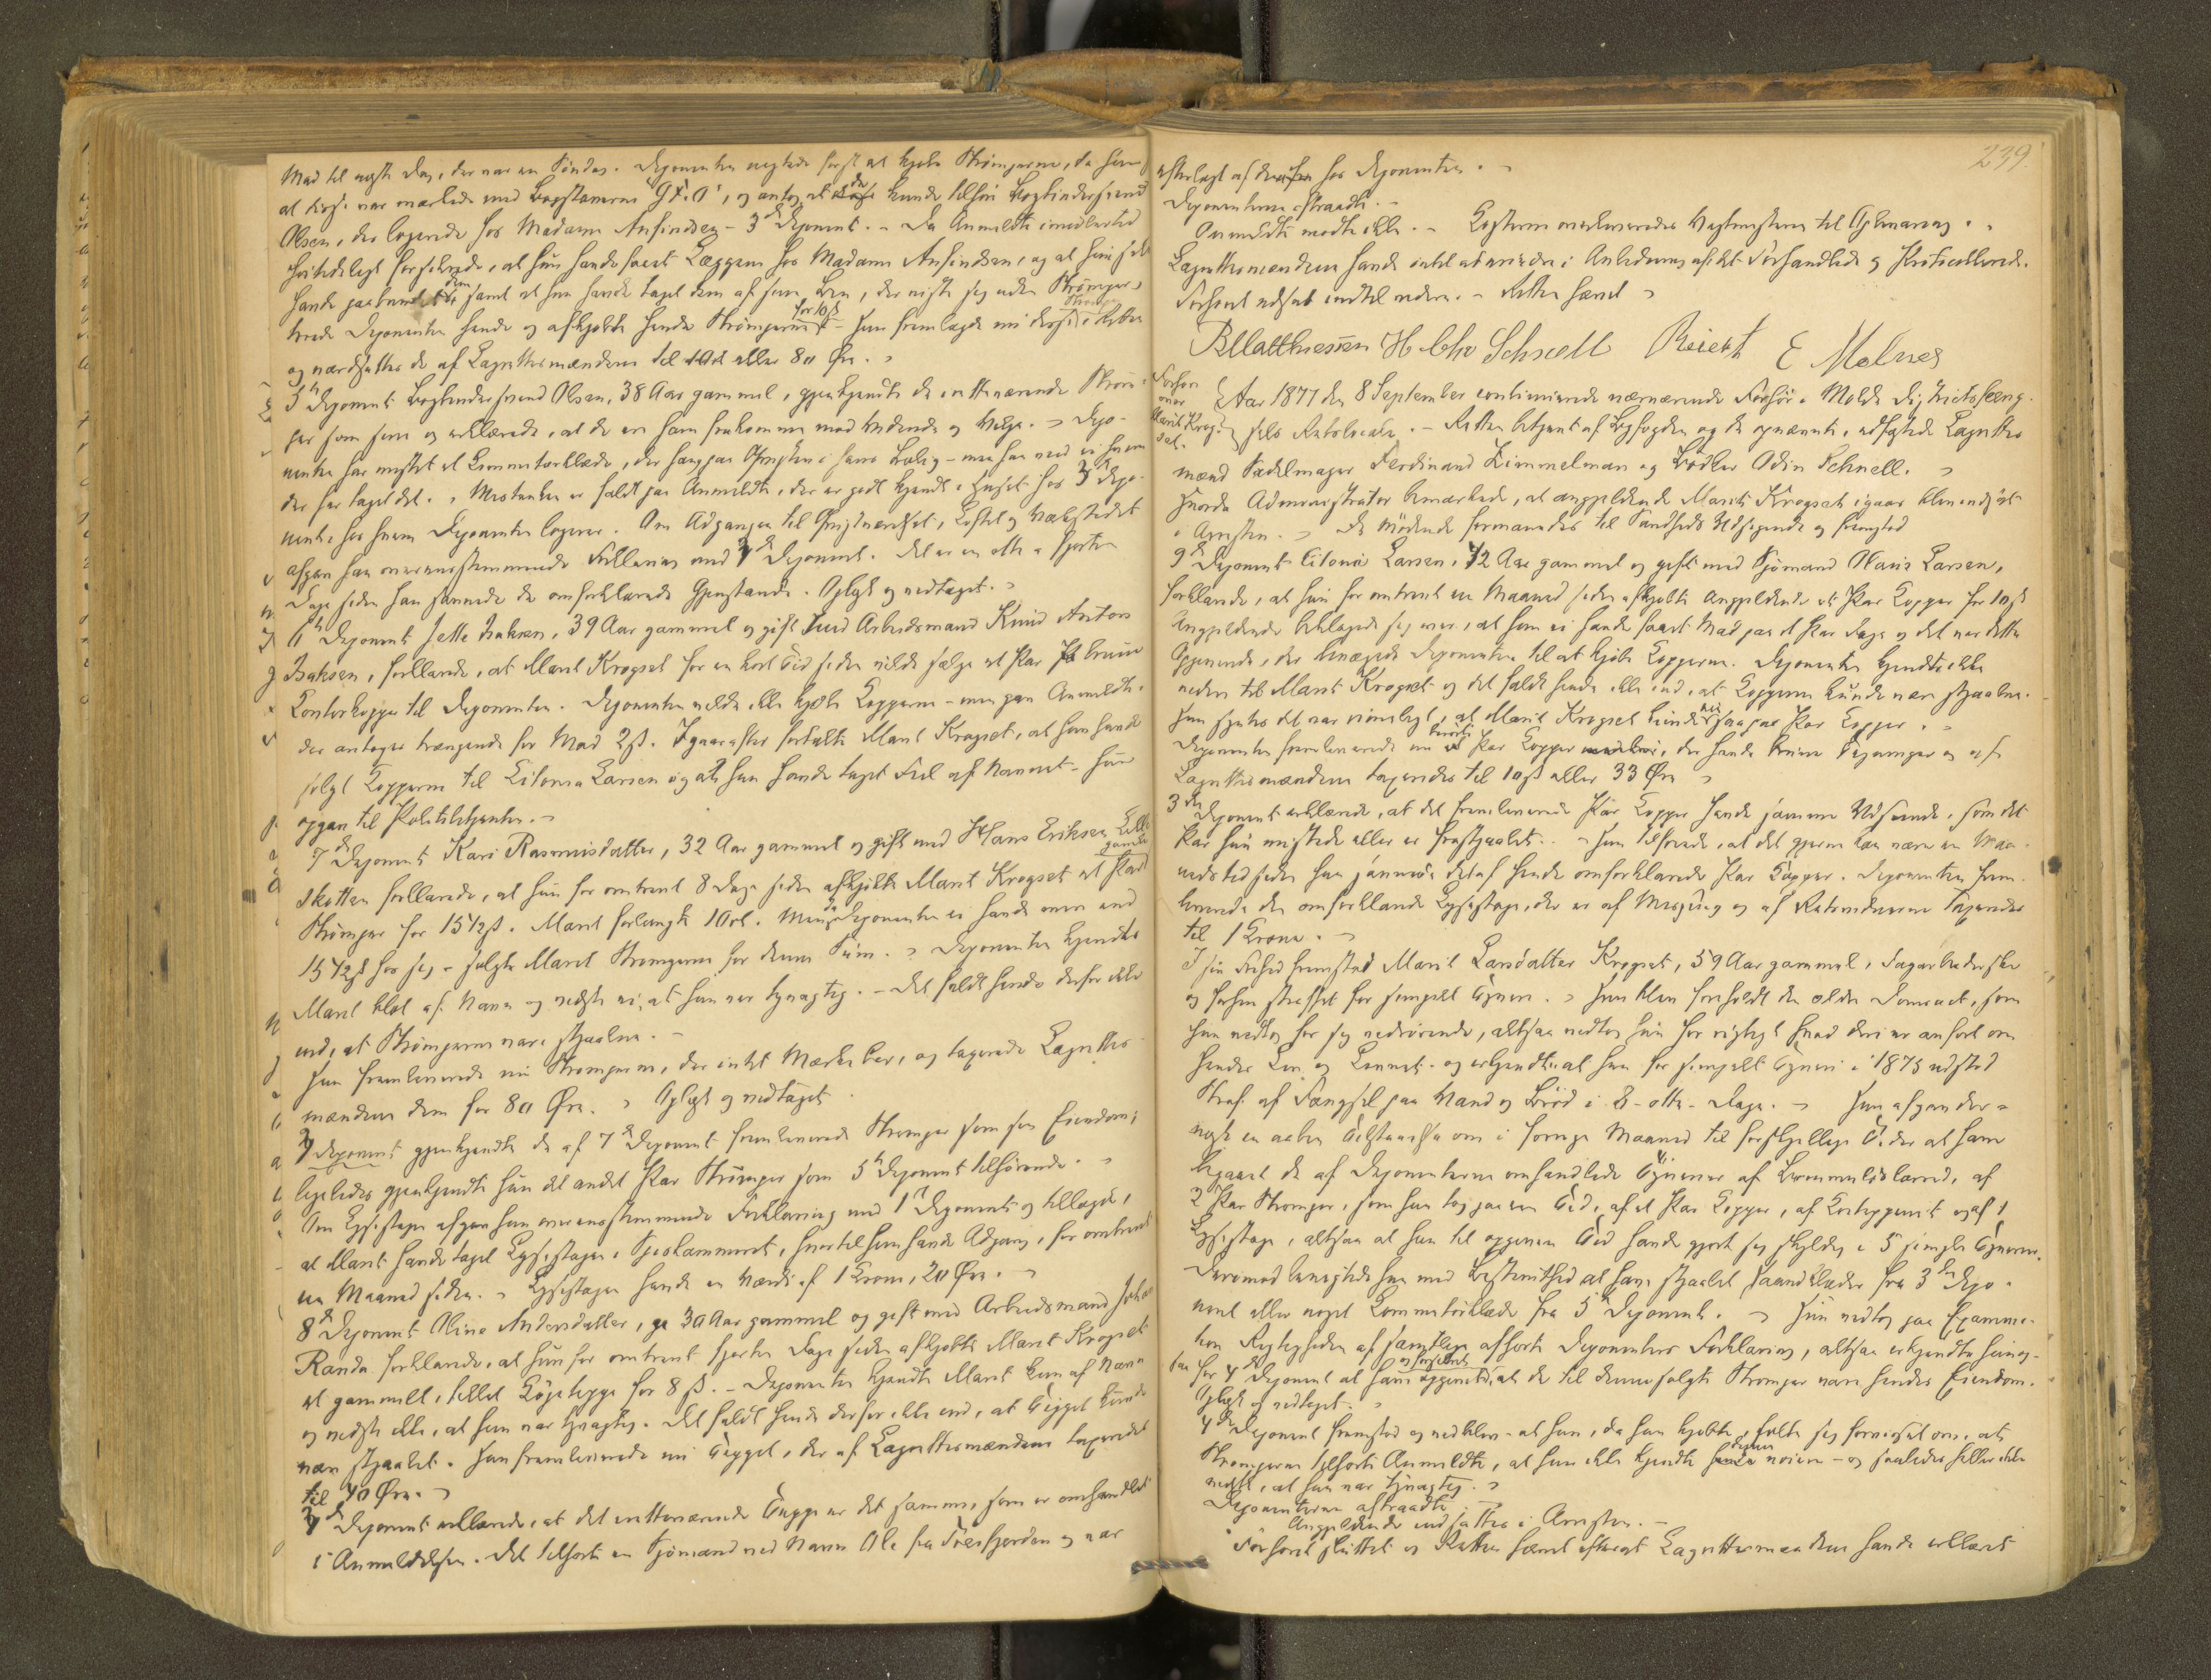 Mad til næste Dag, der var en Søndag. Deponenten negtede først at kjøbe Strømperne, da hun
at disse var mærkede med Bogstaverne G. O., og antog at de kunde tilhøre Bogbindersvend
Olsen, der logerede hos Madame Anfindsen - 3die Deponent. - Da Anmeldte imidlertid
høitideligt forsikrede, at hun havde faaet Læggene hos Madame Anfindsen, og at hun selv
havde paabundet dem samt at hun havde taget dem af sine Ben, der viste sig uden Strømper,
troede Deponenten hende og afkjøbte hende Strømperne for 10 ß - Hun fremlægde nu disse Strømper
og værdsattes de af Lagrettesmændene til eller 80 Øre. -
5te Deponent Bogbindersvend Olsen, 38 Aar gammel, gjenkjendte de tilstedeværende Strøm-
per som sine og erklærede, at de ere ham frakomne mod Vidende og Vilje. - Depo-
nenten har mistet et Lommetørklæde, der hang paa i hans Bolig - men han ved ei hvem
der har taget det. Mistanken er faldt paa Anmeldte, der er godt kjendt i Huset hos 3die Depo-
nent, hos hvem Deponenten logerer. Om Adgangen til Loftet og Værelset
afgav han overensstemmende Forklaring med 3die Deponent. Det er en otte a fjorten
Dage siden han savnede de omforklarede Gjenstande. Oplæst og vedtaget. -
6te Deponent Jette Isaksen, 39 Aar gammel og gift med Arbeidsmand Knud Anton
Isaksen, forklarede, at Marit Krogset for en kort Tid siden vilde sælge et Par brune
Kontorkopper til Deponenten. Deponenten vilde ikke kjøbe Kopperne - men gav Anmeldte,
der antoges trængende for Mad 2 ß. Igaar aftes fortalte Marit Krogset, at hun havde
solgt Kopperne til Litonia Larsen og at hun havde taget Feil af Navnet - hun
opgav til Politibetjenten. -
7de Deponent Kari Rasmusdatter, 32 Aar gammel og gift med Hans Eriksen Lille-
skotten forklarede, at hun for omtrent 8 Dage siden afkjøbte Marit Krogset et Par gamle
Strømper for 15½ ß. Marit forlangte 1 Ort. Men da Deponenten ei havde mere end
15½ ß hos sig - solgte Marit Strømperne for denne Sum. - Deponenten kjendte
Marit blot af Navn og vidste ei, at hun var tyvagtig. - Det faldt hende derfor ikke
ind, at Strømperne vare stjaalne. -
Hun fremleverede nu Strømperne, der intet Mærke bar, og taxerede Lagrettes-
mændene dem for 80 Øre. - Oplæst og vedtaget.
3die Deponent gjenkjendte de af 7de Deponent fremleverede Strømper som sin Eiendom;
ligeledes gjenkjendte hun det andet Par Strømper som 5te Deponent tilhørende. -
Om Lysestagen afgav hun overensstemmende Forklaring med 1ste Deponent og tillagde,
at Marit havde taget Lysestagen i Spiskammeret, hvortil hun havde Adgang, for omtrent
en Maaned siden. - Lysestagen havde en Værdi af 1 Krone, 20 Øre. -
8de Deponent Oline Andersdatter, 30 Aar gammel og gift med Arbeidsmand Johan
Randa forklarede, at hun for omtrent fjorten Dage siden afkjøbte Marit Krogset
et gammelt, lidet Køietæppe for 8 ß. - Deponenten kjendte Marit kun af Navn
og vidste ikke, at hun var tyvagtig. Det faldt hende derfor ikke ind, at Tæppet kunde
være stjaalet. Hun fremleverede nu Tæppet, der af Lagrettesmændene taxeredes
til 40 Øre. -
3die Deponent erklærede, at det tilstedeværende Tæppe er det samme, som er omhandlet
i Anmeldelsen. Det tilhørte en Sjømand ved Navn Ole fra Tresfjorden og var
239.
efterlagt af denne hos Deponenten. -
Deponenterne aftraadte. -
Anmeldte mødte ikke. - Kosterne overleveredes Vagtmesteren til Opbevaring. -
Lagrettesmændene havde intet at erindre i Anledning af det Forhandlede og Protokollerede.
Forhøret udsat indtil videre. - Retten hævet -
B Matthiessen H Chr Schnell Reiert E Molnes
Forhør
over
Marit Krog-
set.
Aar 1877 den 8 September continueredes nærværende Forhør i Molde Districtsfæng-
sels Retslocale. - Retten betjent af Byfogden og de opnævnte, edfæstede Lagrettes-
mænd Sadelmager Ferdinand Zimmelman og Bødker Odin Schnell. -
Hvorda Administrator bemærkede, at angjældende Marit Krogset igaar blev indsat
i Arresten. - De Mødende formanedes til Sandheds Udsigende og fremstod
9de Deponent Litonia Larsen, 42 Aar gammel og gift med Sjømand Olaus Larsen,
forklarede, at hun for omtrent en Maaned siden afkjøbte Angjældende et Par Kopper for 10 ß
Angjældende beklagede sig over, at hun ei havde faaet Mad paa et Par Dage og det var dette
Opgivende, der bevægede Deponenten til at kjøbe Kopperne. Deponenten kjendte ikke
videre til Marit Krogset og det faldt hende ikke ind, at Kopperne kunde være stjaalne.
Hun syntes det var rimeligt, at Marit Krogset kunde eie saa faa Par Kopper. -
Deponenten fremleverede nu et Par Kopper, der havde brune Tegninger og af
Lagrettesmændene taxeredes til 10 ß eller 33 Øre -
3die Deponent erklærede, at det fremleverede Par Kopper havde samme Udseende, som det
Par hun mistede eller er frastjaalet. - Hun tilføiede, at det gjerne kan være en Maa-
nedstid siden hun savnede det af hende omforklarede Par Kopper. Deponenten frem-
leverede den omforklarede Lysestage, der er af Messing og af Retsvidnerne taxeredes
til 1 Krone. -
I sin Frihed fremstod Marit Larsdatter Krogset, 59 Aar gammel, Dagarbeiderske
og forhen straffet for simpelt Tyveri. - Hun blev foreholdt den ældre Domsact, som
hun vedtog for sig vedrørende, altsaa vedtog hun for rigtigt hvad deri er anført om
hendes Liv og Levnet - og erkjendte at hun for simpelt Tyveri i 1875 udstod
Straf af Fængsel paa Vand og Brød i 8 - otte - Dage. - Hun afgav der-
næst en aaben Tilstaaelse om i forrige Maaned til forskjellige Tider at have
begaaet de af Deponenterne omhandlede Tyverier af Bommuldslærred, af
2 Par Strømper, som hun tog paa een Tid, af et Par Kopper, af Køietæppet og af 1
Lysestage, altsaa at hun til opgiven Tid havde gjort sig skyldig i 5 simple Tyverier.
Derimod benegtede hun med Bestemthed at have stjaalet Haandklæder fra 3die Depo-
nent eller noget Lommetørklæde fra 5te Deponent. - Hun vedtog paa Examina-
tion Rigtigheden af samtlige afhørte Deponenters Forklaring, altsaa erkjendte hun og-
saa for 4de Deponent at have opgivet og forsikret, at de til denne solgte Strømper vare hendes Eiendom.
Oplæst og vedtaget. -
4de Deponent fremstod og vedblev - at hun, da hun kjøbte, følte sig forvisset om, at
Strømperne tilhørte Anmeldte, at hun ikke kjendte denne nøiere - og saaledes heller ikke
vidste, at hun var tyvagtig. -
Deponenterne aftraadte
Angjældende indsattes i Arresten. -
Forhøret sluttet og Retten hævet efterat Lagrettesmændene havde erklæret